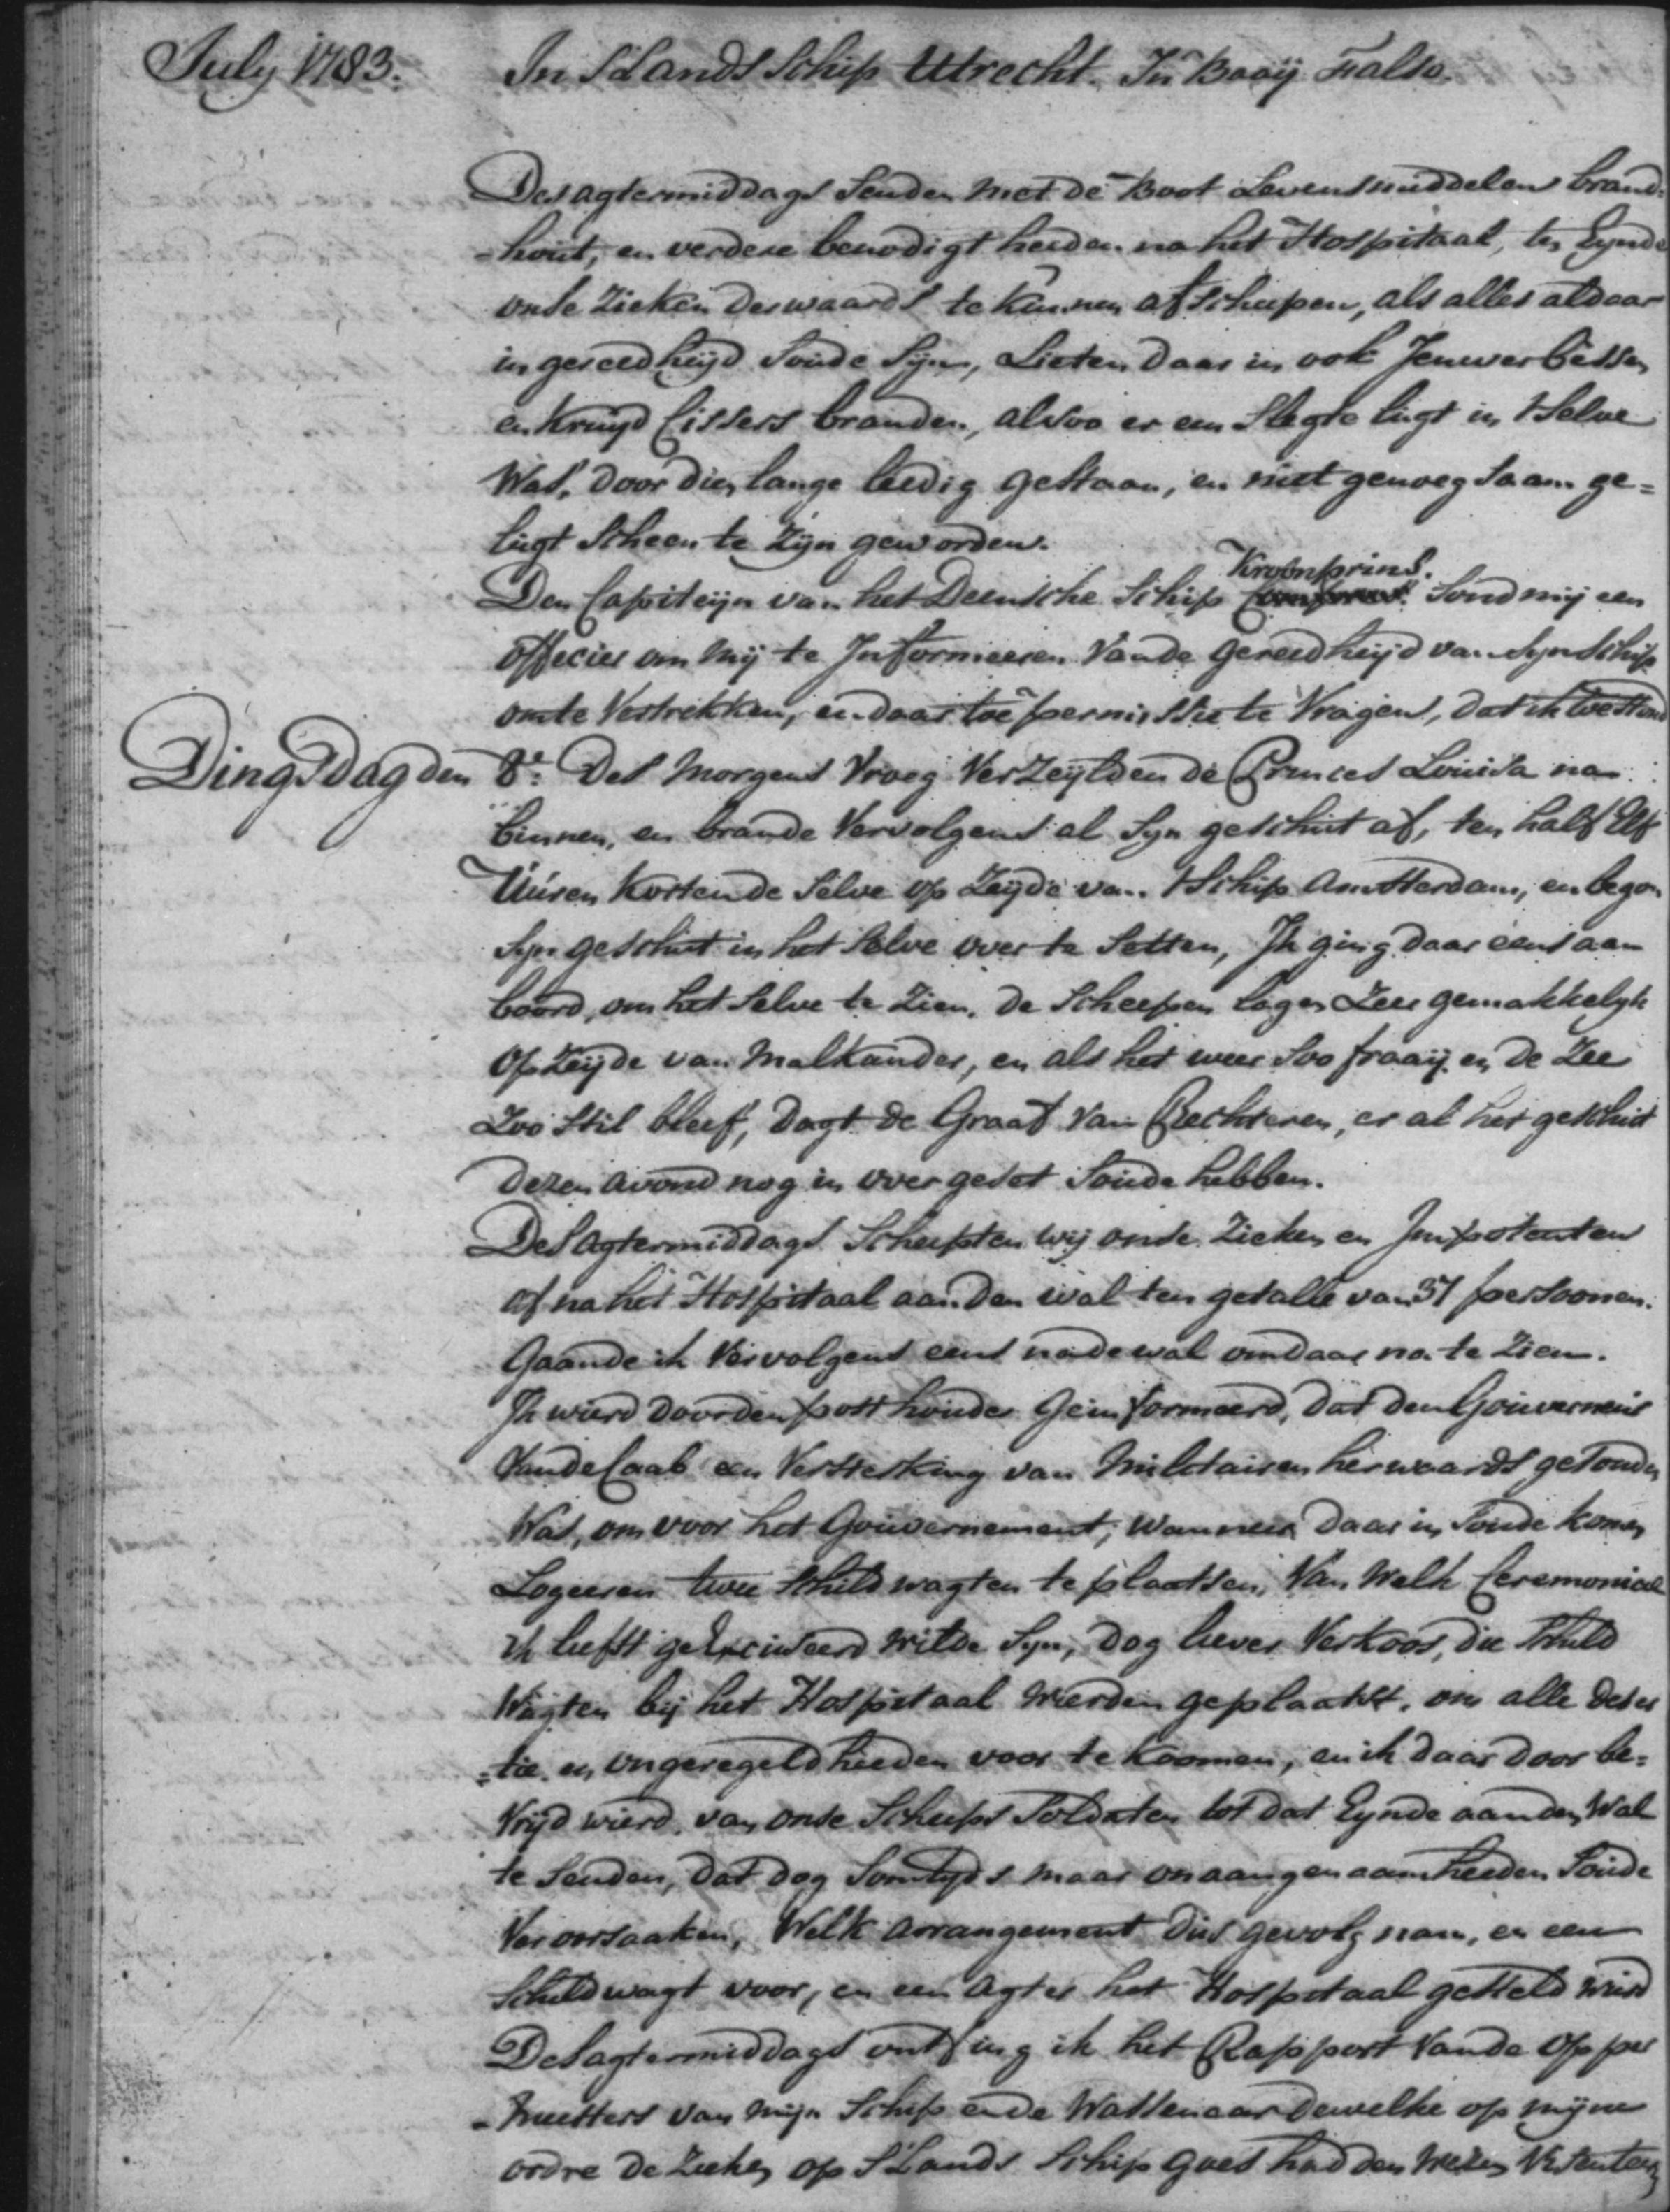 July 1783. In S'Lands Schip Utrecht. In Baaij Falso.
Des agtermiddags Senden met de Boot Levensmiddelen brand-
-hout, en verdere benodigt heeden na het Hospitaal, ten Eynde
onse Zieken derwaards te kunnen afscheepen, als alles aldaar
in gereedheijd Soude Sijn, Lieten daar in ook Jenuwerbessen
en Kruijd Cissers branden, alsoo er een Slegte lugt in 't Selve
Was, door dien lange leedig gestaan, en niet genoegsaam ge=
lugt Scheen te Zijn geworden.
Kroonprins.
Den Capiteijn van het Deensche Schip Sond mij een
officier om mij te Informeeren Van de gereedheijd van Syn Schip
om te Vertrekken, en daar toe permissie te Vragen, dat ik toestond
Dingsdag den 8e. Des Morgens Vroeg Verzeijlden de Princes Louisa na
binnen, en brande Vervolgens al Syn geschut af, ten half Elf
Uuren kortende Selve op Zeijde van 't Schip Amsterdam, en begon
Syn geschut in het Selve over te Setten, Ik ging daar eens aan
boord, om het Selve te Zien, de Scheepen lagen Zeer gemakkelyk
op Zeijde van Malkander, en als het weer Soo fraaij en de Zee
Zoo Stil bleef, dagt de Graaf van Rechteren, er al het geschut
dezen avond nog in over geset Soude hebben.
Des Agtermiddags Scheepten wij onse Zieken en Impotenten
af na het Hospitaal aan den wal ten getalle van 37 persoonen.
Gaande ik Vervolgens eens na de wal om daar na te Zien.
Ik wierd door den post houder Geinformeerd, dat den Gouverneur
Van de Caab een Versterking van Militairen herwaards gesonden
Was, om voor het Gouvernement, wanneer daar in Soude komen
Logeeren twee Schild wagten te plaatsen, Van Welk Ceremonieel
ik liefst geExcuseerd wilde Syn, dog liever Verkoos, die Schild
Wagten bij het Hospitaal wierden geplaatst, om alle deser
=tie en ongeregeldheeden voor te koomen, en ik daar door be=
Vrijd wierd, van onse Scheeps Soldaten tot dat Eynde aan den Wal
te Senden, dat dog Somtyds maar onaangenaamheeden Soude
Veroorsaaken, Welk arrangement dus gevolg nam, en een
Schildwagt voor, en een Agter het Hospitaal gesteld wierd
Des agtermiddags ontfing ik het Rapport Van de Opper
-Meesters van mijn Schip en de Wassenaar dewelke op mijne
ordre de Zieken op S'Lands Schip Goes hadden wezen Visenteeren